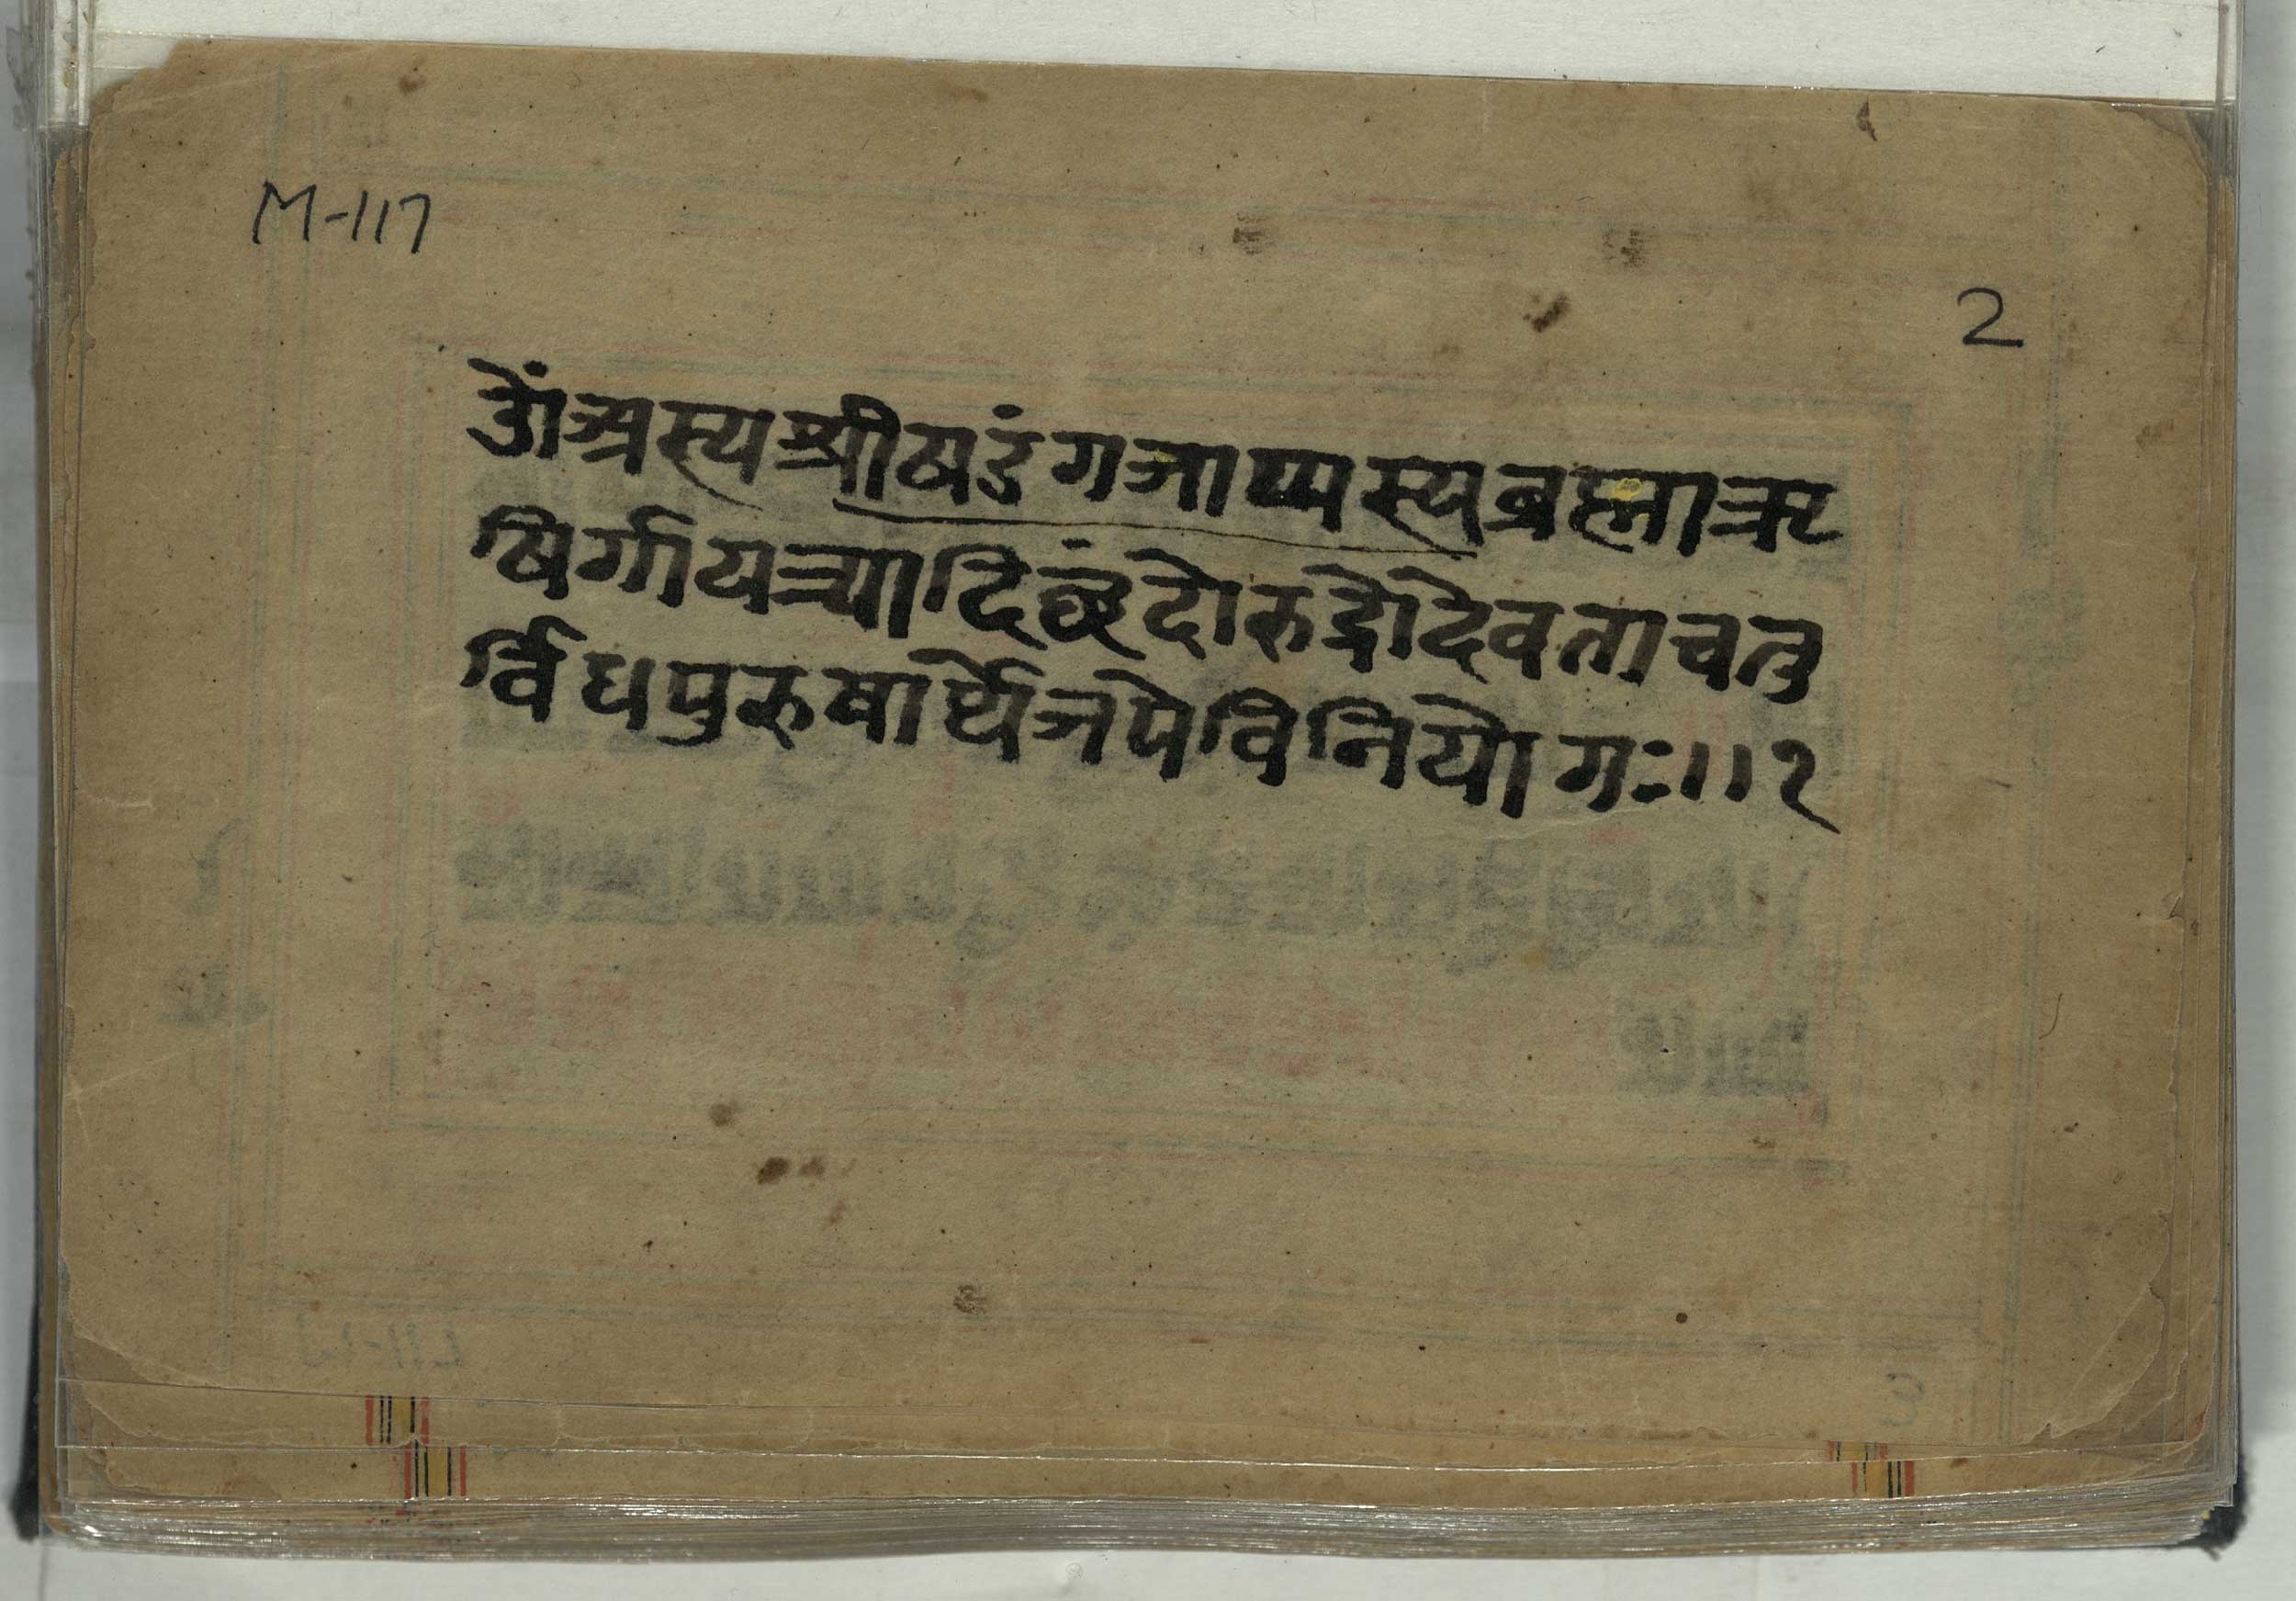 M-117
2
ओंअस्यश्रीषडंगजाप्यस्यब्रह्माऋ
षिर्गायत्र्यादिछंदोरुद्रोदेवताचतु
र्विधपुरुषार्थेजपेविनियोगः॥१